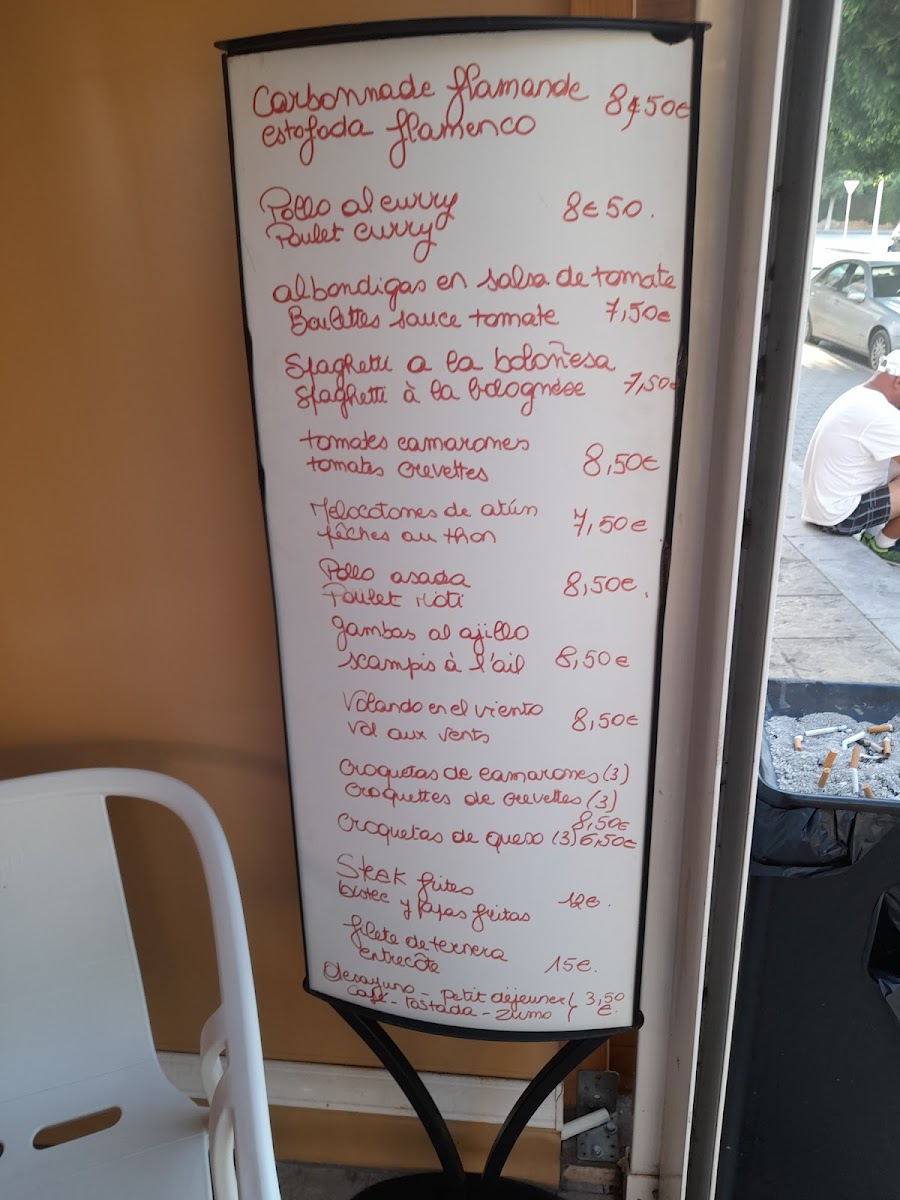 Carbonnade flamande 8€50€
estofada flamenco
Pollo al curry 8€50.
Poulet curry
albondigas en salsa de tomate
Boulettes sauce tomate 7,50€
Spaghetti a la boloñesa
Spaghetti à la bolognése 7,50€
tomates camarones
tomates crevettes 8,50€
Melocotones de atún
pêches au thon 7,50€
Pollo asada
Poulet rioti 8,50€.
gambas al ajillo
scampis à l'ail 8,50€
Volando en el viento
Vol aux vents 8,50€
Croquetas de camarones (3)
Croquettes de crevettes (3)
8,50€
Croquetas de queso (3) 6,50€
Steak frites
bistec y papas fritas 12€.
filete de ternera
entrecôte 15€.
Desayuno - Petit déjeuner ( 3,50
Café - Tostada - Zumo ( €.